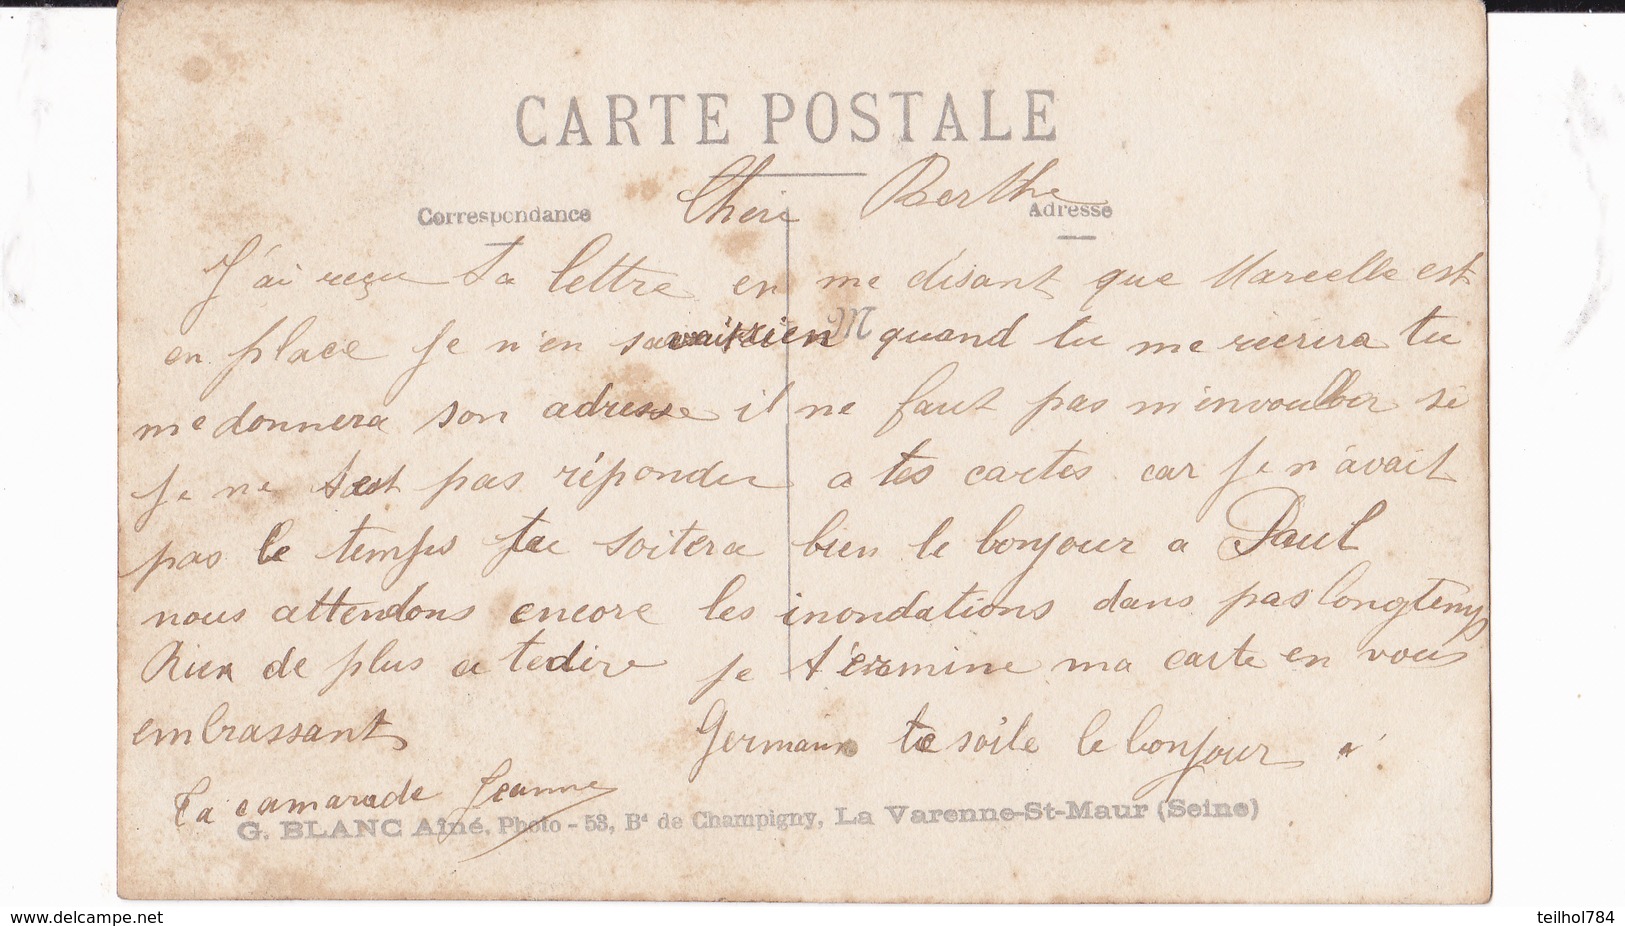 CARTE POSTALE
Correspondance
Adresse
Cheri Berthe
J'ai reçu ta lettre en me disant que Marcelle est
en place je n'en savait rien quand tu me rierira tu
M
me donnera son adresse il ne faut pas m'envoulloir si
je ne pas répondu a tes cartes car je n'avait
pas le temps tu soitera bien le bonjour a Paul
nous attendons encore les inondations dans pas longtemps
Rien de plus a te dire je termine ma carte en vous
embrassant
Germain te soite le bonjour
Ta camarade Jeanne
G. BLANC Aîné, Photo - 53, Bd de Champigny, La Varenne-St-Maur (Seine)
www.delcampe.net
teilhol784